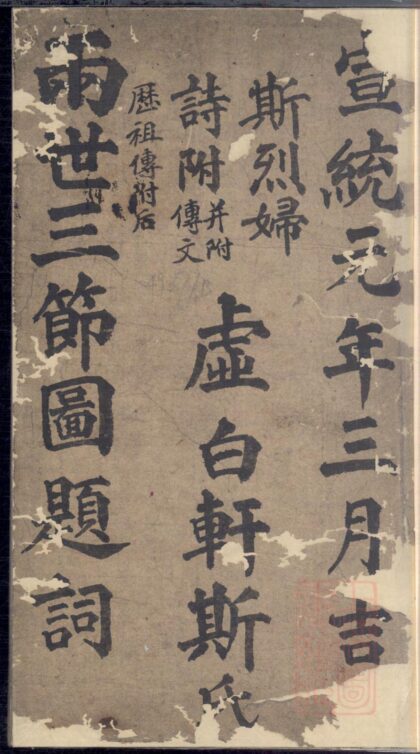 宣統元年三月吉
斯烈婦
詩附并附傳文
虛白軒斯氏
歷祖傳附后
兩世三節圖題詞